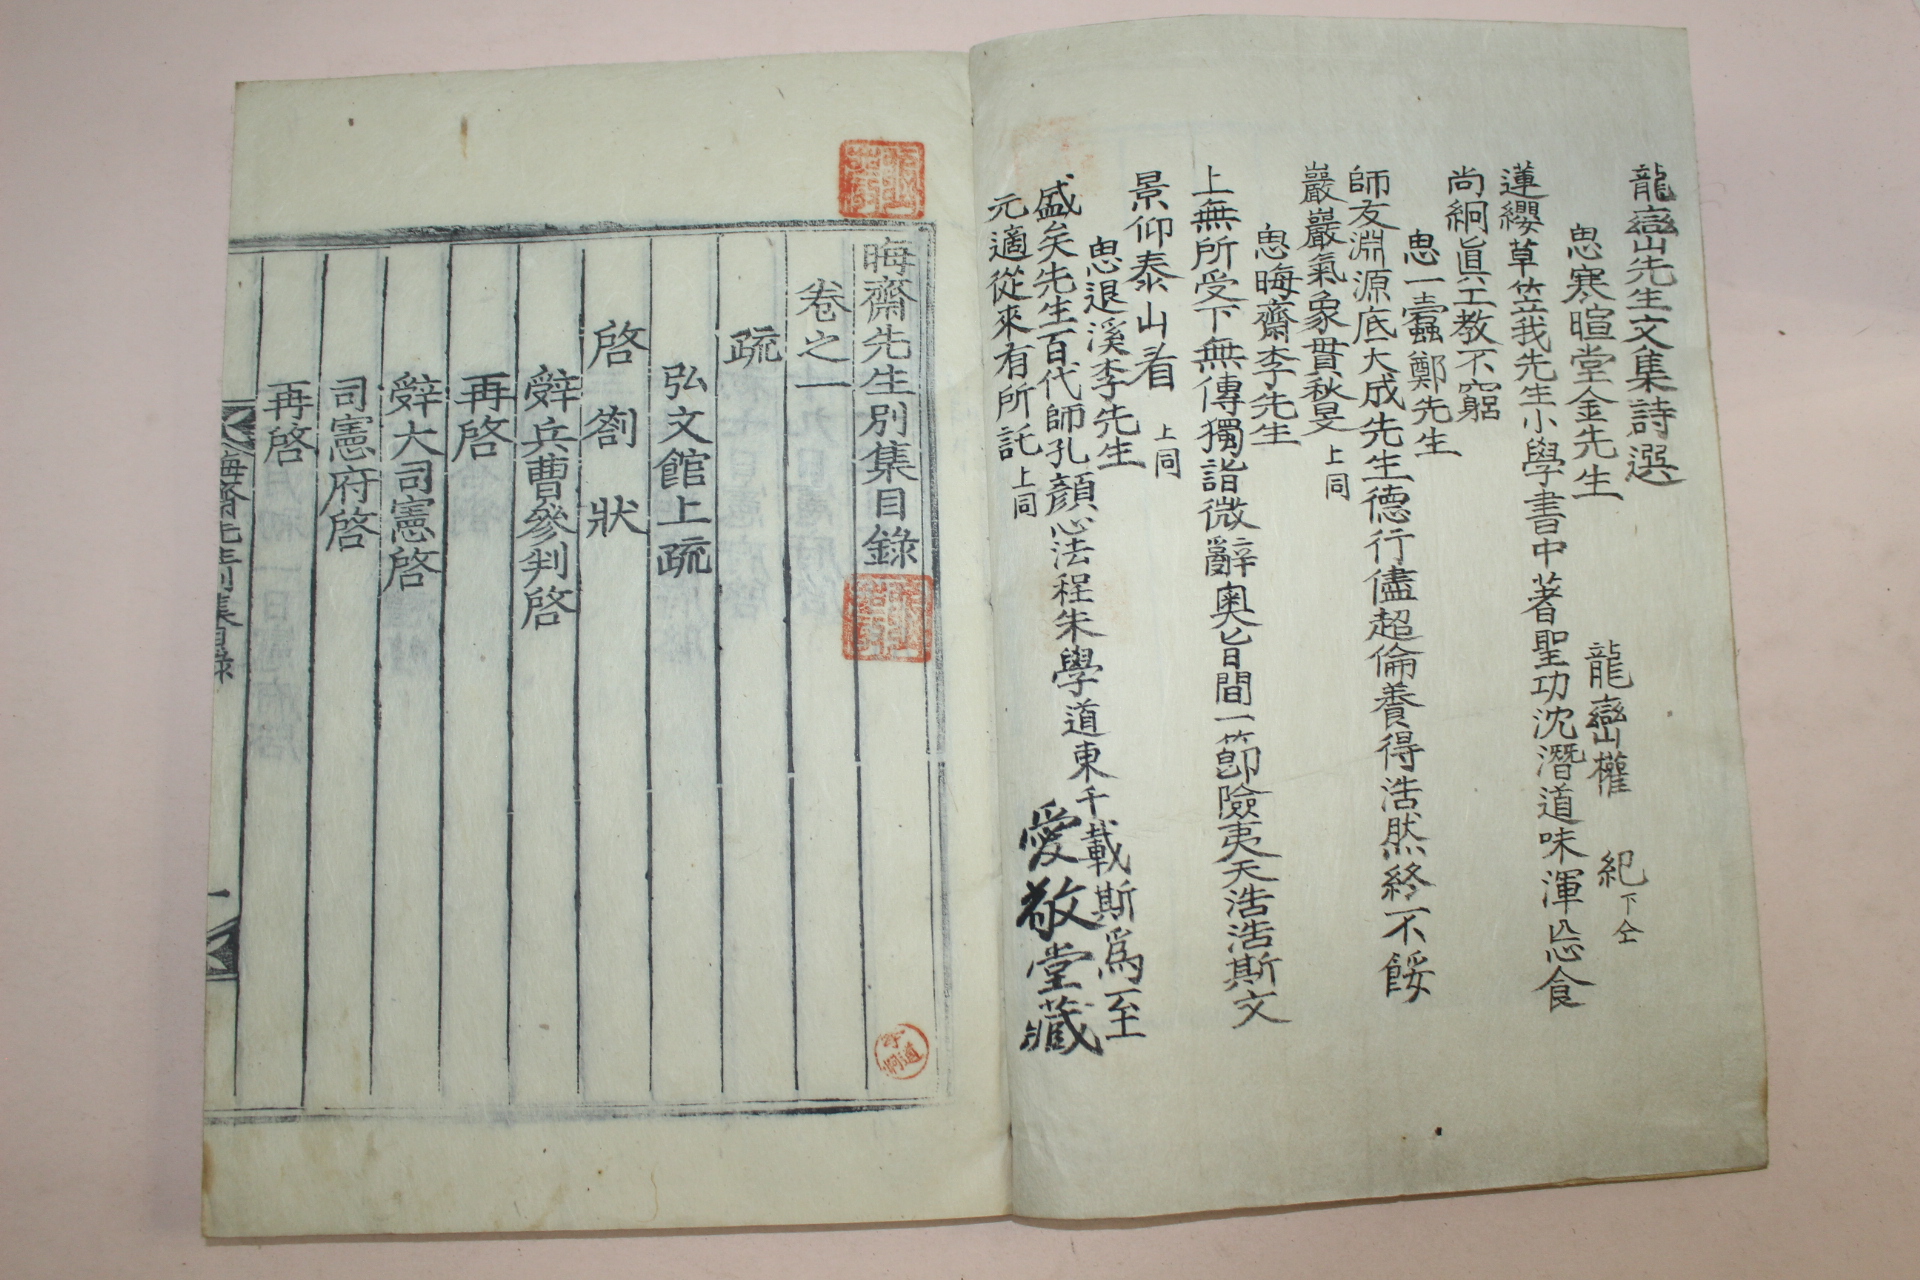 龍巒先生文集詩選
思寒暄堂金先生
龍巒權 紀 下仝
蓮纓草笠我先生小學書中著聖功沈潛道味渾忘食
尚絅眞工教不窮
思一蠹鄭先生
師友淵源底大成先生德行儘超倫養得浩然終不餒
嚴嚴氣象貫秋旻 上同
思晦齋李先生
上無所受下無傳獨詣微辭奧旨間一節險夷天浩浩斯文
景仰泰山看 上同
思退溪李先生
盛矣先生百代師孔顏心法程朱學道東千載斯爲至
元適從來有所託 上同
愛敬堂藏
晦齋先生別集目錄
卷之一
疏
弘文館上疏
啓 劄 狀
辭兵曹參判啓
再啓
辭大司憲啓
司憲府啓
再啓
晦齋先生別集目錄
一